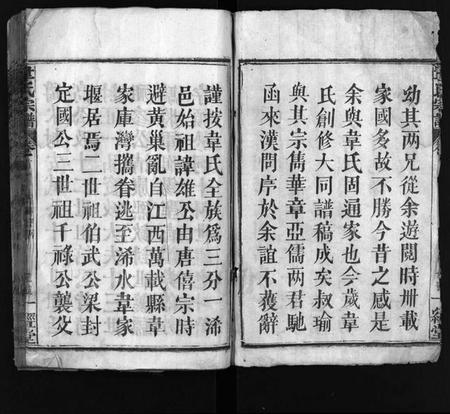 幼其兩兄從余遊閱時卅載
家國多故不勝今昔之感是
余與韋氏固通家也今歲韋
氏創修大同譜稿成矣叔瑜
與其宗雋華章亞儒兩君馳
函來漢問序於余誼不獲辭
謹按韋氏全族爲三分一浠
邑始祖諱雄公由唐僖宗時
避黃巢亂自江西萬載縣韋
家庫灣攜眷逃至浠水韋家
堰居焉二世祖伯武公梁封
定國公三世祖千祿公襲父
氏宗譜
一經堂